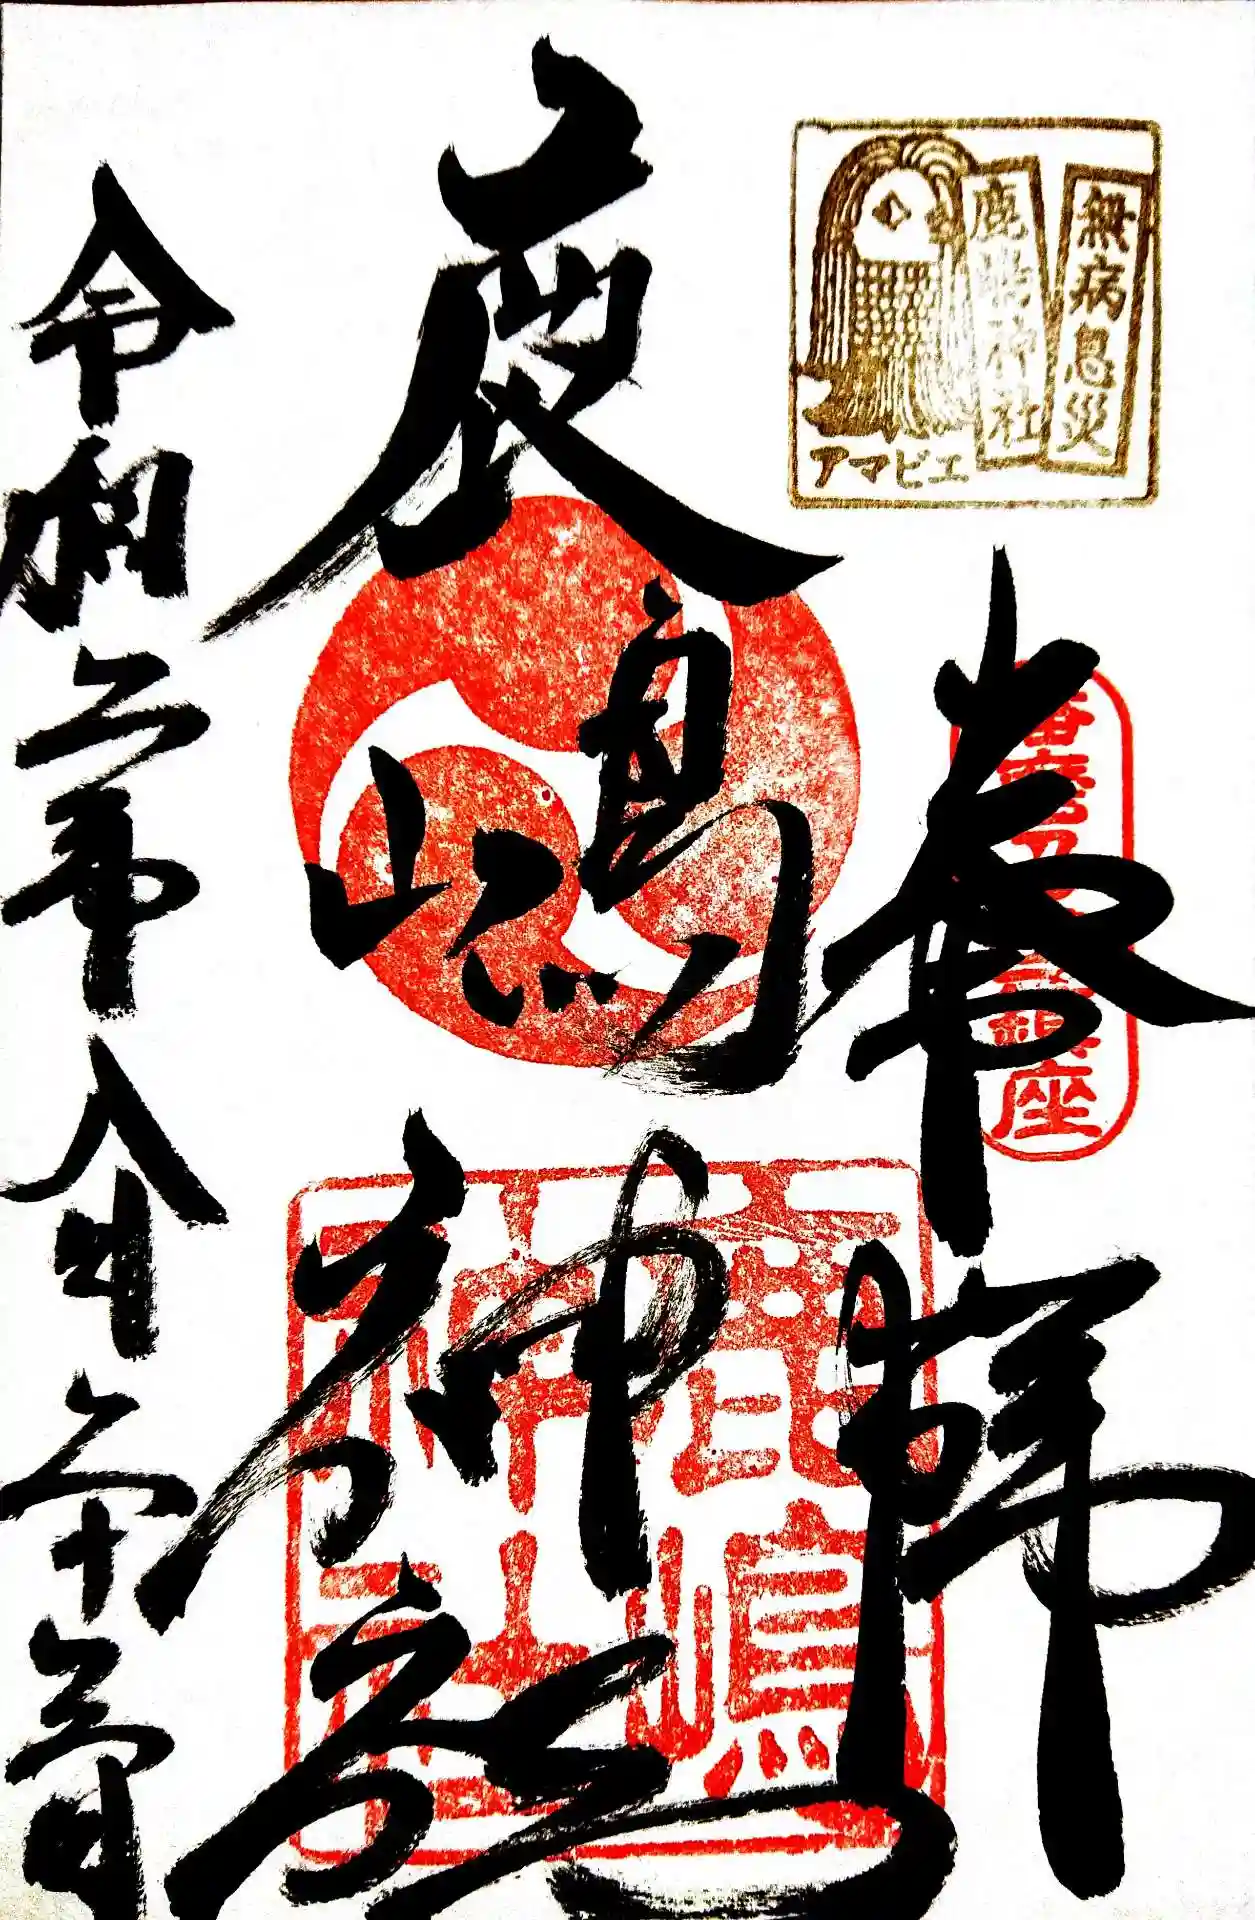 無病息災
鹿嶋神社
アマビエ
奉拝
播磨
座
鹿嶋神社
鹿嶋神社
令和二年八月二十三日